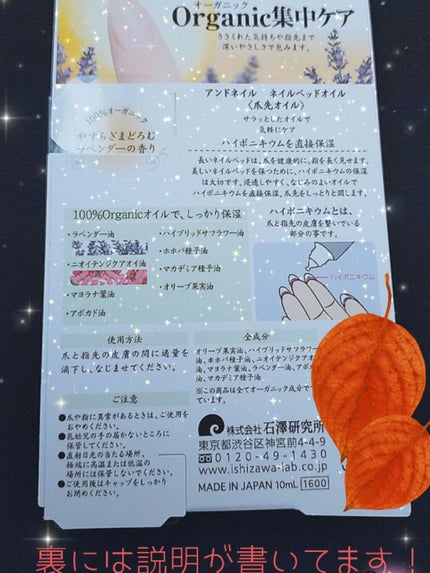 オーガニック
Organic集中ケア
ささくれた気持ちや指先まで
深いやさしさで包みます。
アンドネイル ネイルベッドオイル
〈爪先オイル〉
サラッとしたオイルで
気軽にケア
100%オーガニック
やすらぎまどろむ
ラベンダーの香り
ハイポニキウムを直接保湿
長いネイルベッドは、爪を健康的に、指を長く見せます。
美しいネイルベッドを保つために、ハイポニキウムの保湿
は大切です。浸透しやすく、なじみのよいオイルで
ハイポニキウムを直接保湿。爪先をしっとりと潤します。
100%Organicオイルで、しっかり保湿
・ラベンダー油
・ニオイテンジクアオイ油
・マヨラナ葉油
・アボカド油
・ハイブリッドサフラワー油
・ホホバ種子油
・マカデミア種子油
・オリーブ果実油
ハイポニキウムとは、
爪と指先の皮膚を繋いでいる
部分の事です。
ハイポニキウム
使用方法
爪と指先の皮膚の間に適量を
滴下し、なじませてください。
ご注意
●爪や指に異常があるときは、ご使用を
おやめください。
●乳幼児の手の届かないところに
保管してください。
●直射日光の当たる場所、
極端に高温または低温の
場所には保管しないでください。
●ご使用後はキャップをしっかり
お閉めください。
全成分
オリーブ果実油、ハイブリッドサフラワー
油、ホホバ種子油、ニオイテンジクアオイ
油、マヨラナ葉油、ラベンダー油、アボカド
油、マカデミア種子油
※この商品は全てオーガニック成分で
ています。
株式会社 石澤研究所
東京都渋谷区神宮前4-4-9
0120-49-1430
www.ishizawa-lab.co.jp
MADE IN JAPAN 10mL 1600
裏には説明が書いてます！